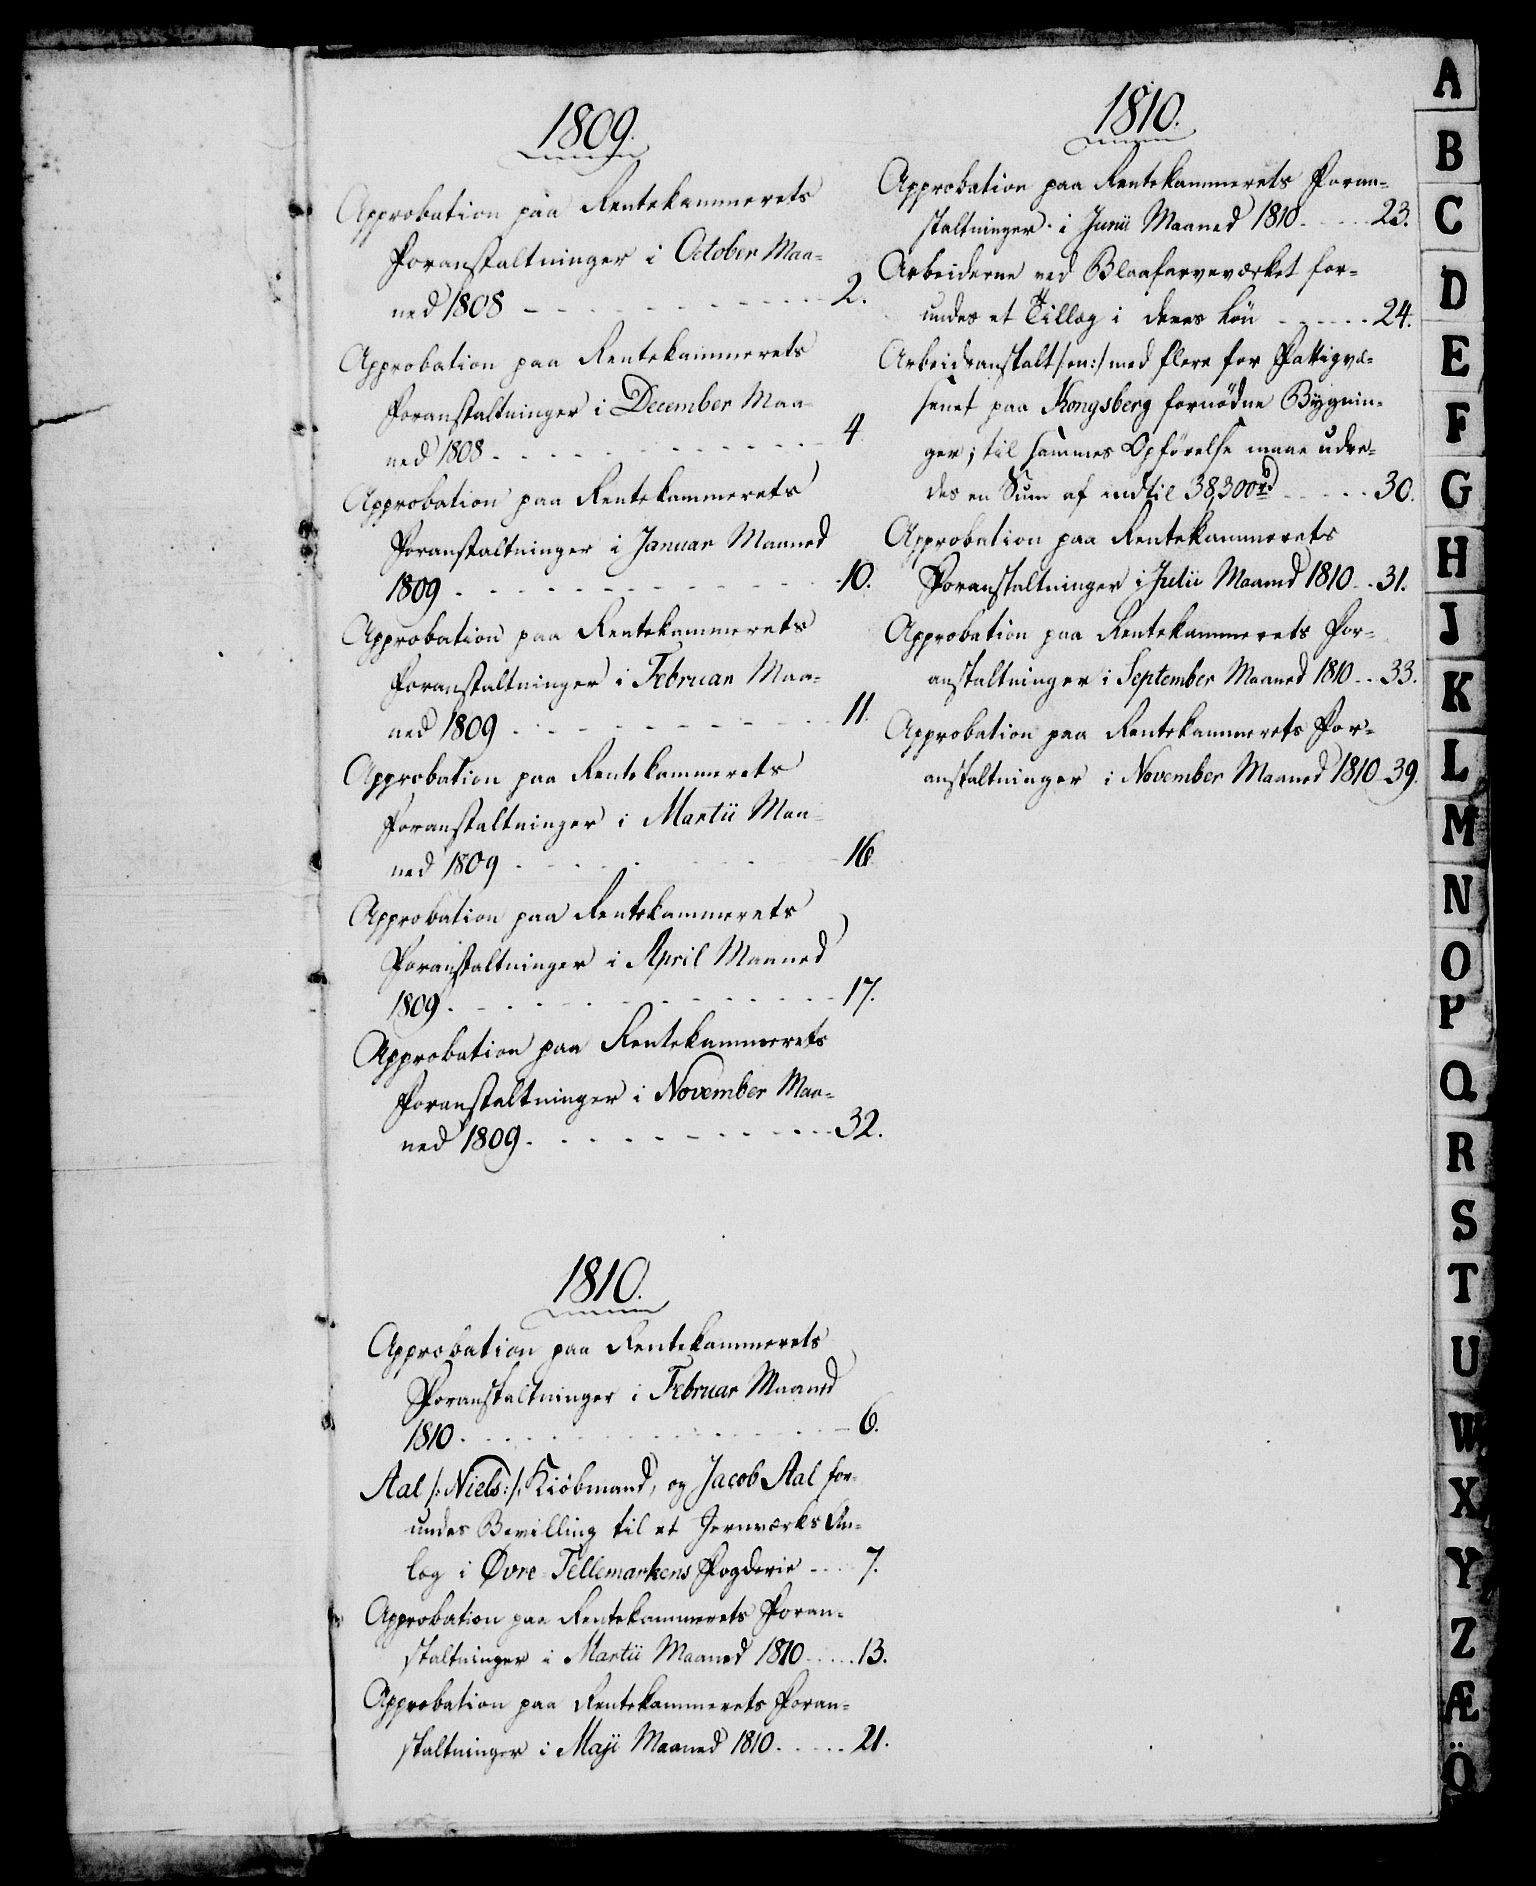 1809.
Approbation paa Rentekammerets
Foranstaltninger i October Maa-
ned 1808 - - - - - - - - - 2.
Approbation paa Rentekammerets
Foranstaltninger i December Maa-
ned 1808 - - - - - - - - - 4
Approbation paa Rentekammerets
Foranstaltninger i Januar Maaned
1809 - - - - - - - - - 10.
Approbation paa Rentekammerets
Foranstaltninger i Februar Maa-
ned 1809 - - - - - - - - - 11.
Approbation paa Rentekammerets
Foranstaltninger i Martii Maa-
ned 1809 - - - - - - - - - 16
Approbation paa Rentekammerets
Foranstaltninger i April Maaned
1809 - - - - - - - - - 17.
Approbation paa Rentekammerets
Foranstaltninger i November Maa-
ned 1809 - - - - - - - - - 32.
1810.
Approbation paa Rentekammerets
Foranstaltninger i Februar Maaned
1810 - - - - - - - - - 6.
Aal /: Niels :/ Kiöbmand, og Jacob Aal for-
undes Bevilling til et Jernværks An-
læg i Øvre Tellemarkens Fogderie - - - 7.
Approbation paa Rentekammerets Foran-
staltninger i Martii Maaned 1810 - - - 13.
Approbation paa Rentekammerets Foran-
staltninger i Maji Maaned 1810 - - - 21.
1810.
Approbation paa Rentekammerets Foran-
staltninger i Junii Maaned 1810 - - - 23.
Arbeiderne ved Blaafarveværket for-
undes et Tillæg i deres Løn - - - 24.
Arbeidsanstalt /:en:/ med flere for Fattigvæ-
senet paa Kongsberg fornödne Bygnin-
ger; til sammes Opförelse maae udre-
des en Sum af indtil 38,300 rd - - - 30.
Approbation paa Rentekammerets
Foranstaltninger i Julii Maaned 1810 - - 31.
Approbation paa Rentekammerets For-
anstaltninger i September Maaned 1810 - - 33.
Approbation paa Rentekammerets For-
anstaltninger i November Maaned 1810 - 39.
A
B
C
D
E
F
G
H
J
K
L
M
N
O
P
Q
R
S
T
U
W
X
Y
Z
Æ
Ö